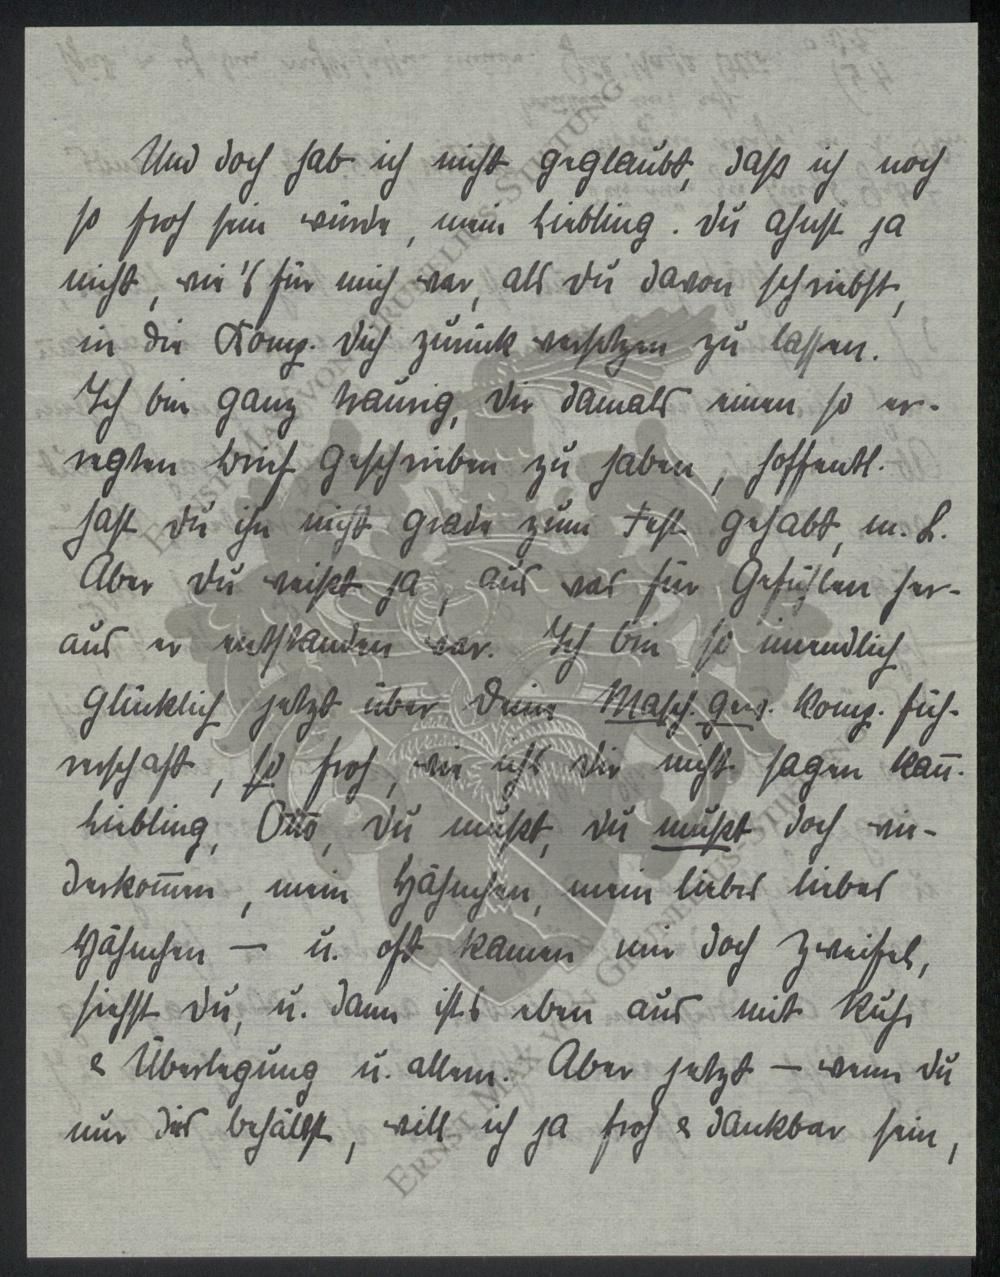 Und doch hab ich nicht geglaubt, daß ich noch
so froh sein würde, mein Liebling. Du ahnst ja
nicht, wie's für mich war, als Du davon schriebst,
in die Komp. Dich zurück versetzen zu lassen.
Ich bin ganz traurig, Dir damals einen so er-
regten Brief geschrieben zu haben, hoffentl.
hast Du ihn nicht grade zum Fest gehabt, m. L.
Aber Du weißt ja, aus was für Gefühlen her-
aus er entstanden war. Ich bin so unendlich
glücklich jetzt über Deine Masch. Gew. Komp. füh-
rerschaft, so froh, wie ich's Dir nicht sagen kan̅.
Liebling, Otto, Du mußt, Du mußt doch wie-
derkom̅en, mein Hähnchen, mein lieber lieber
Hähnchen – u. oft kamen mir doch Zweifel,
siehst Du, u. dann ist's eben aus mit Ruhe
& Überlegung u. allem. Aber jetzt – wenn Du
nur dies behältst, will ich ja froh & dankbar sein,
ERNST MAX VON GRUNELIUS-STIFTUNG
ERNST MAX VON GRUNELIUS-STIFTUNG